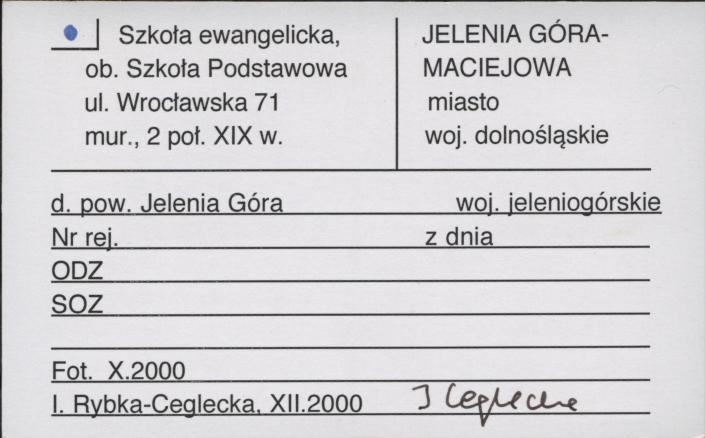 Szkoła ewangelicka,
ob. Szkoła Podstawowa
ul. Wrocławska 71
mur., 2 poł. XIX w.
JELENIA GÓRA-
MACIEJOWA
miasto
woj. dolnośląskie
d. pow. Jelenia Góra woj. jeleniogórskie
Nr rej. z dnia
ODZ
SOZ
Fot. X.2000
I. Rybka-Ceglecka, XII.2000 I Ceglecka